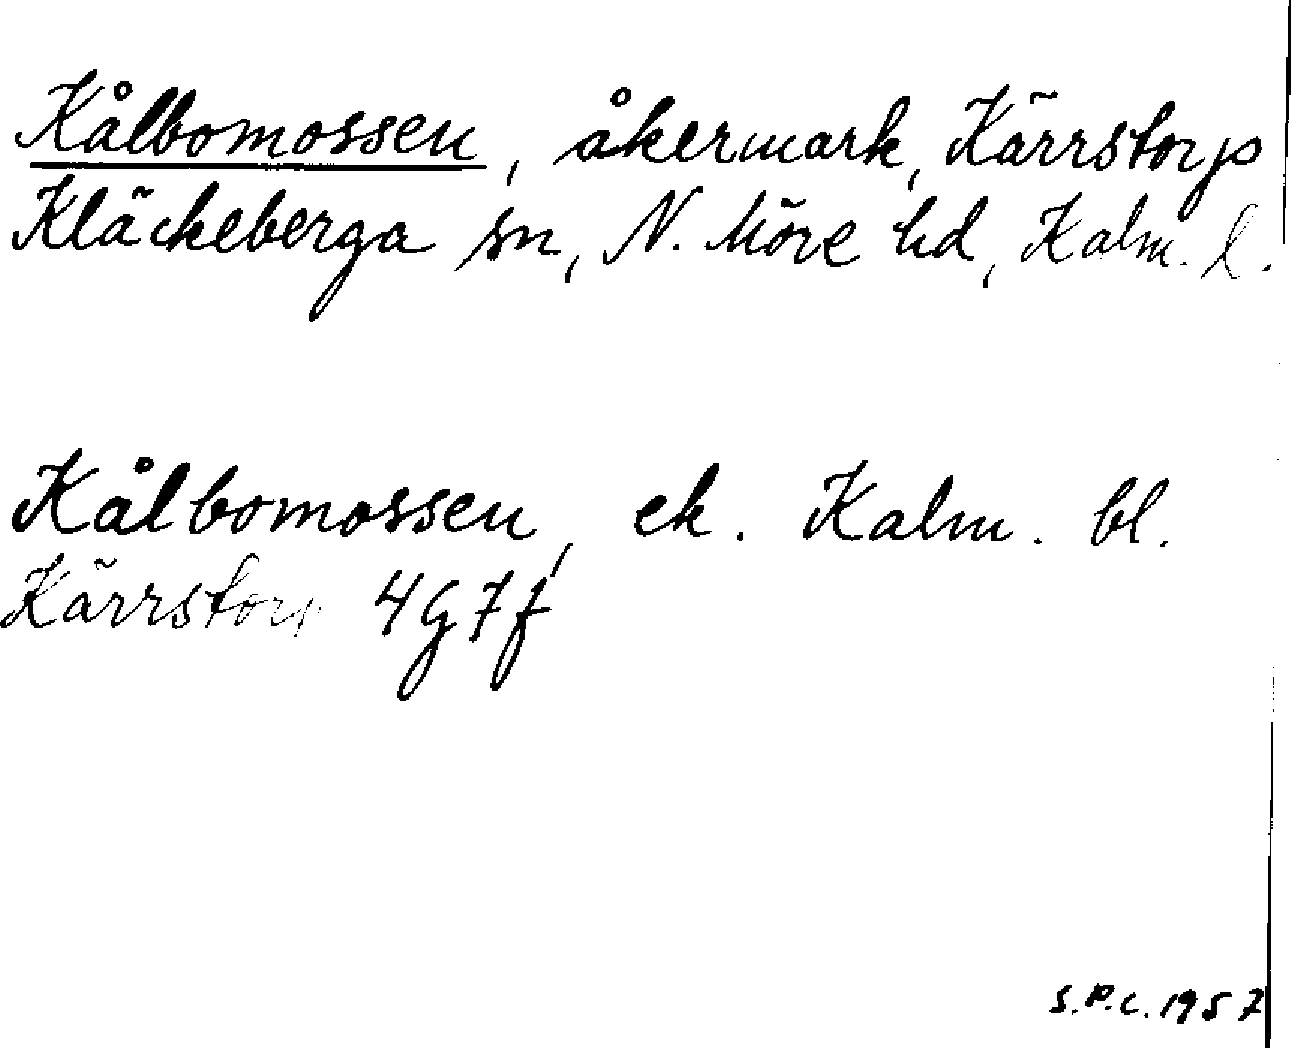 Kålbomossen, åkermark, Kärrstorp
Kläckeberga sn, N. Möre hd, Kalm. l.
Kålbomossen, ek. Kalm. bl.
Kärrstorp 4G7f
S.P.L. 1957